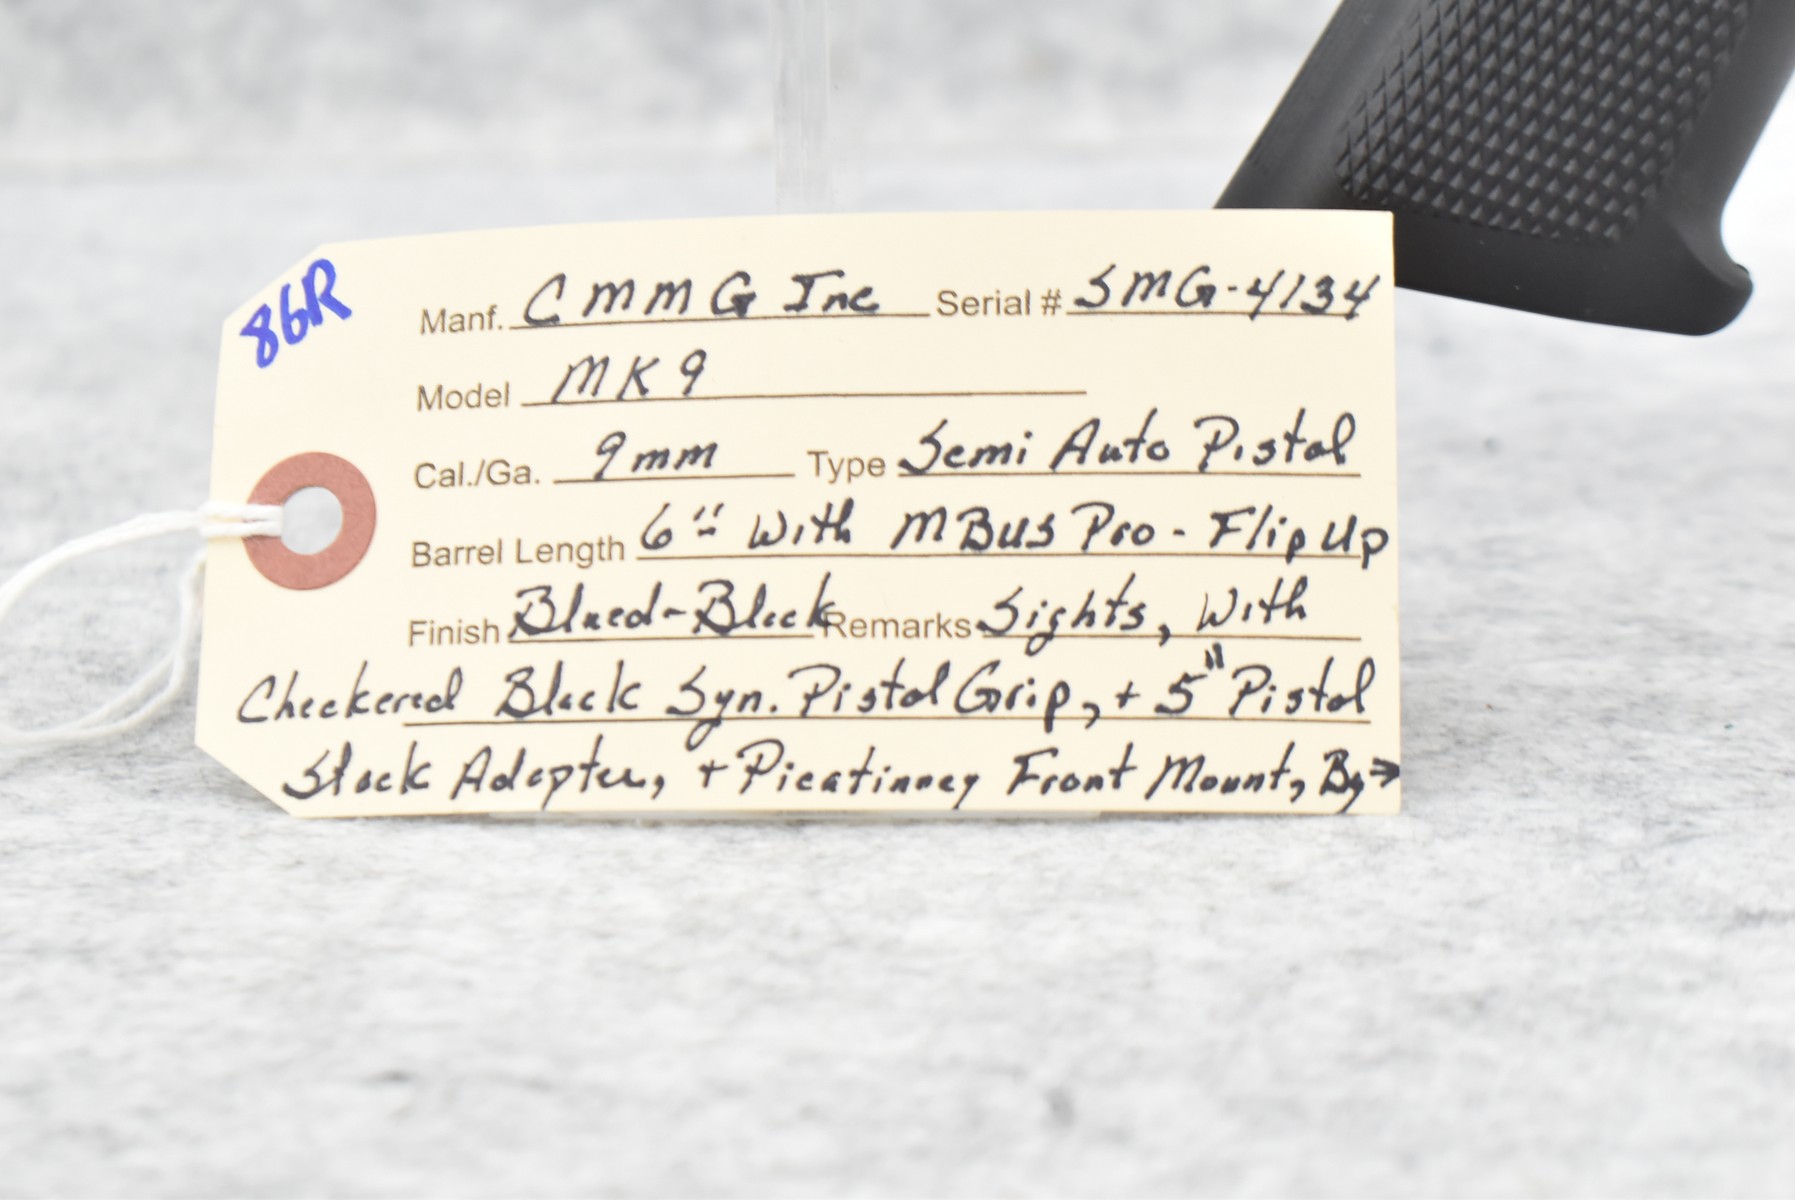 86R
Manf. CMMG Inc Serial # SMG-4134
Model MK9
Cal./Ga. 9mm Type Semi Auto Pistol
Barrel Length 6" With MBUS Pro - Flip Up
Finish Blued-Black Remarks Sights, With
Checkered Black Syn. Pistol Grip, + 5" Pistol
Stock Adapter, + Picatinney Front Mount, By →